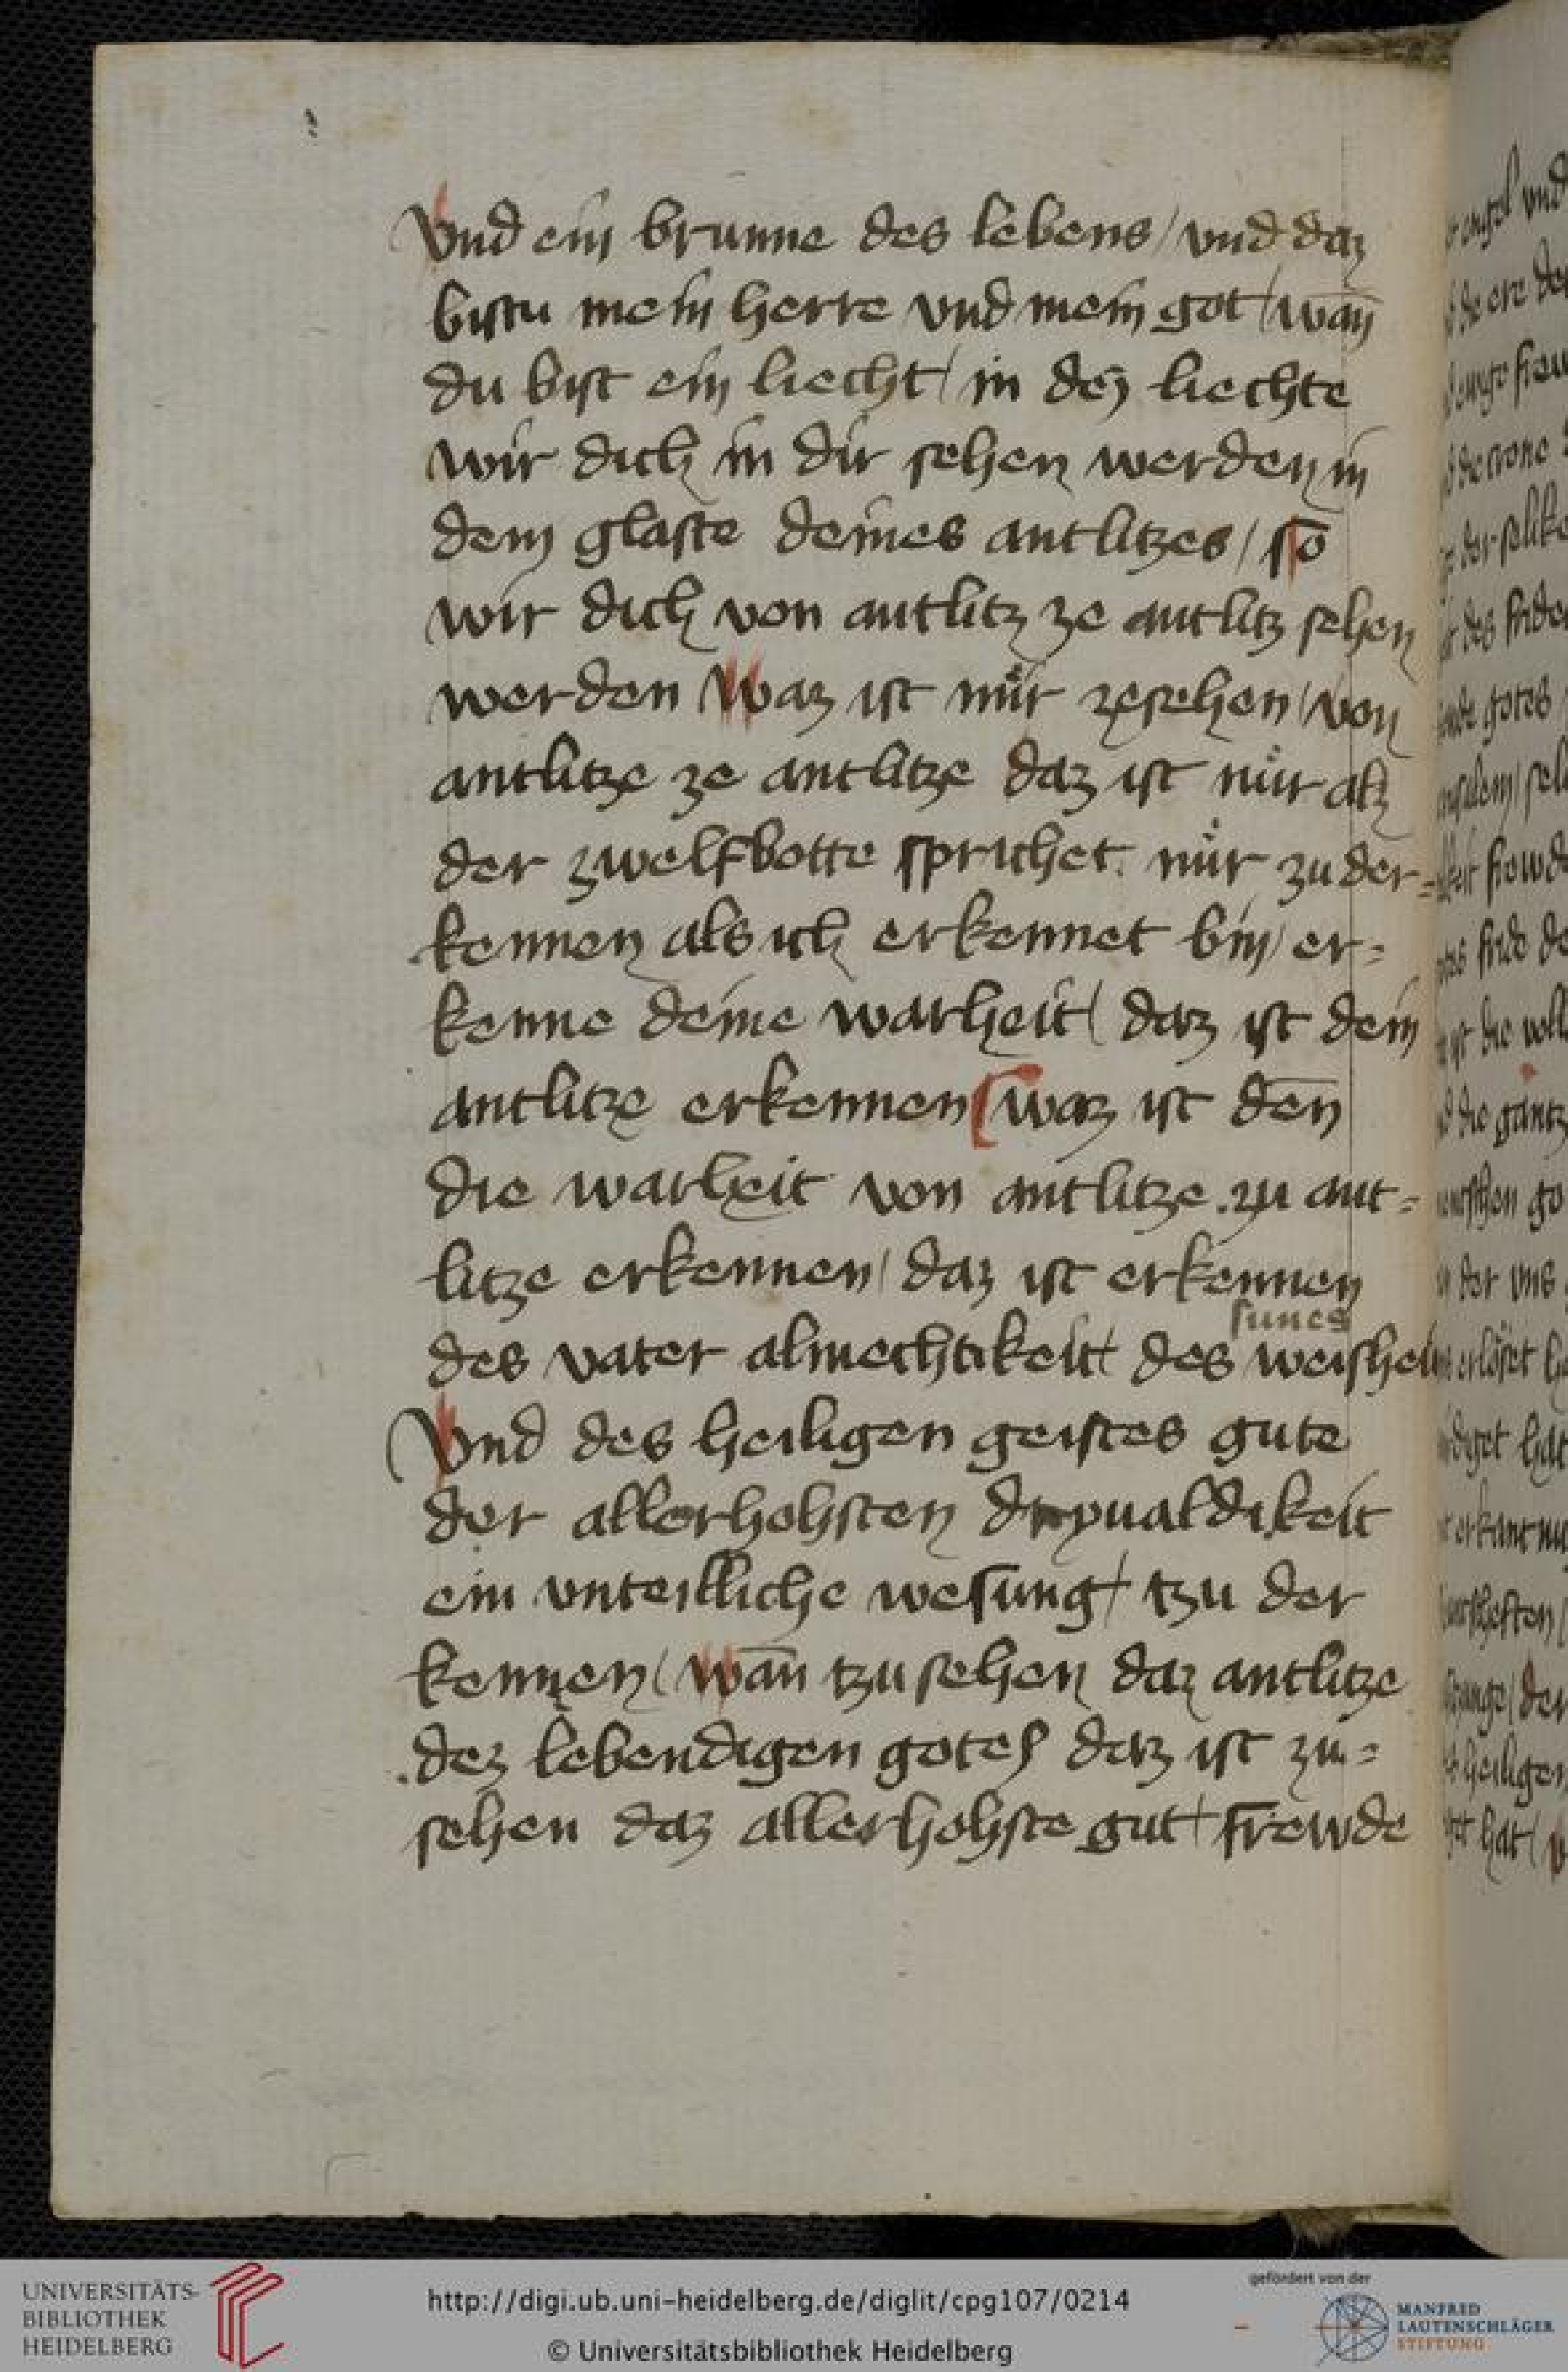 Vnd ein brunne des lebens / vnd daz
bistu mein herre vnd mein got / wan̄
du bist ein liecht / in dez liechte
wir dich in dir sehen werden in
dem glaste deines antlitzes / so
wir dich von antlitz ze antlitz sehen
werden Waz ist nůr zesehen / von
antlitze ze antlitze daz ist nůr alz
der zwelfbotte sprichet nůr zu der=
kennen als ich erkennet bin / er=
kenne deine warheit / daz ist dein
antlitze erkennen / waz ist den̄
die warheit von antlitze zu ant=
litze erkennen / daz ist erkennen
sunes
des vater almechtikeit / des weishei
Vnd des heiligen geistes gute
der allerhohsten dryualdikeit
ein vnteilliche wesung / tzu der
kennen / wan̄ tzu sehen daz antlitze
dez lebendigen gotes daz ist zu=
sehen daz allerhohste gut / frewde
UNIVERSITÄTS-
BIBLIOTHEK
HEIDELBERG
http://digi.ub.uni-heidelberg.de/diglit/cpg107/0214
© Universitätsbibliothek Heidelberg
gefördert von der
MANFRED
LAUTENSCHLÄGER
STIFTUNG